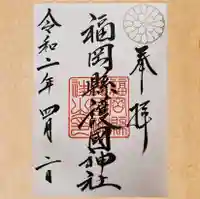 奉拝
福岡縣護國神社
令和二年四月二日